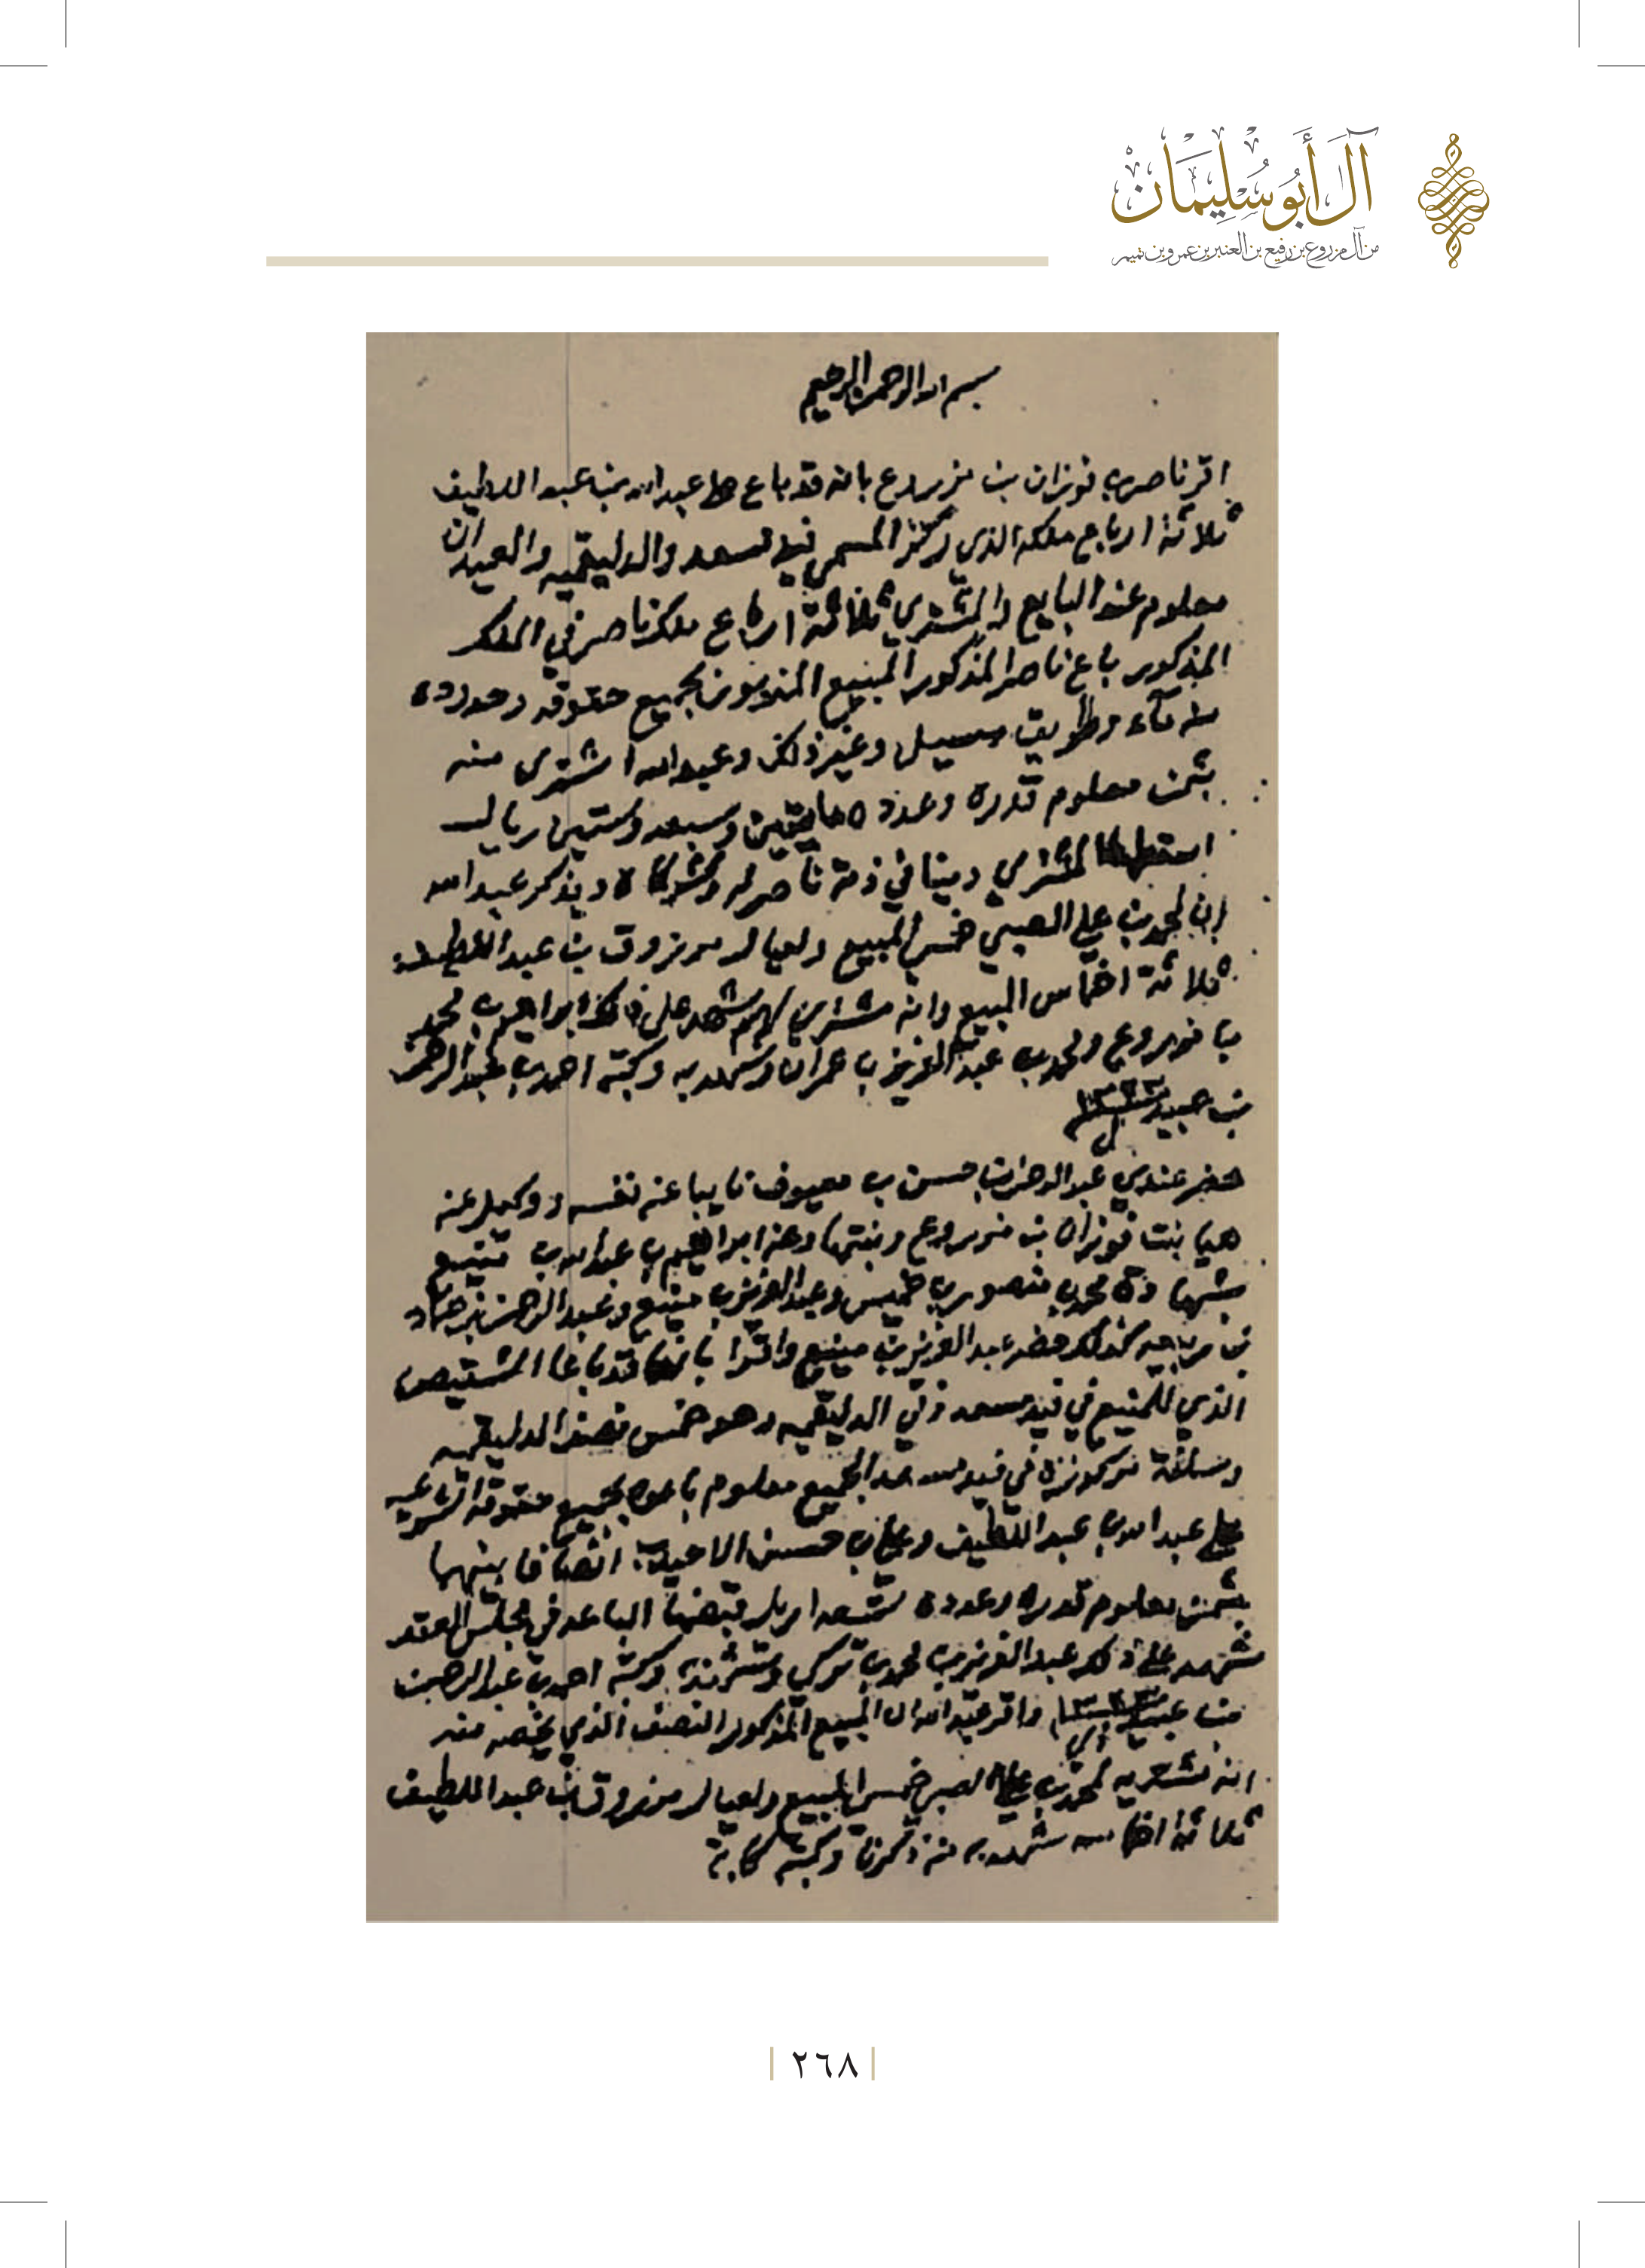 آل أبو سليمان
من آل مزروع بن رفيع بن العنبر بن عمرو بن تميم
بسم الله الرحمن الرحيم
اقر ناصر بن فوزان بن مزروع بانه قد باع على عبد الله بن عبد اللطيف
ثلاثة ارباع ملكه الذي المسمى فيد سعد والدليقميه والعيدان
معلوم عند البايع والمشتري ثلاثة ارباع ملك ناصر في الملك
المذكور باع ناصر المذكور المبيع المذكور بجميع حقوقه وحدوده
من ماء وطريق ومسيل وغير ذلك وعبد الله اشترى منه
بثمن معلوم قدره وعدده مايتين وسبعه وستين ريال
المشتري دينا في ذمة ناصر له ويذكر عبد الله
ان لمحمد بن علي الصبي خمس المبيع ولعيال مرزوق بن عبد اللطيف
ثلاثة اخماس المبيع وانه مشتري لهم شهد على ذلك ابراهيم بن محمد
بن مزروع ومحمد بن عبد العزيز بن عمران وشهد به وكتبه احمد بن عبد الرحمن
بن عبيد ١٣٣٣
حضر عندي عبد الرحمن بن حسن بن معيوف نايبا عن نفسه ووكيل عن
هيا بنت فوزان بن مزروع وبنتها وعن ابراهيم بن عبد الله بن منيع
بشهادة محمد بن منصور بن خميس وعبد العزيز بن منيع وعبد الرحمن بن حماد
بن كذلك حضر عبد العزيز بن منيع واقروا بانهم قد باعوا الشقيص
الذي للمنيع في فيد سعد وفي الدليقميه وهو خمس نصف الدليقميه
في فيد سعد الجميع معلوم باعوه بجميع حقوقه الشرعيه
على عبد الله بن عبد اللطيف وعلي بن حسين انصافا بينهما
بثمن معلوم قدره وعدده اريل قبضها الباعه في مجلس العقد
شهد على ذلك عبد العزيز بن محمد بن تركي وكتبه احمد بن عبد الرحمن
بن عبيد ١٣٣٣ واقر عبد الله ان المبيع المذكور النصف الذي يخصه منه
انه مشتريه لمحمد بن علي الصبي خمس المبيع ولعيال مرزوق بن عبد اللطيف
ثلاثة اخماسه شهد به من ذكرنا وكتبه كاتبه
٢٦٨